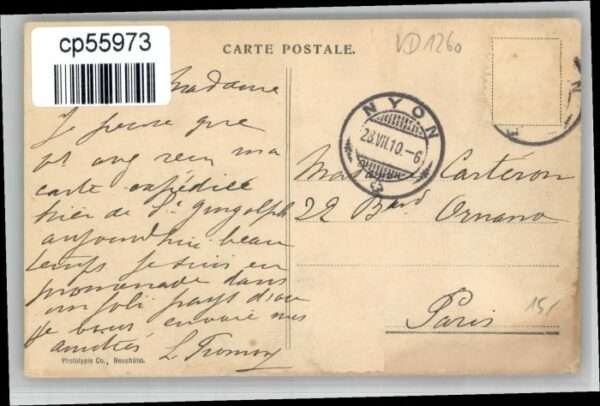 cp55973
CARTE POSTALE.
VD1260
Madame
Je pense que
avez reçu ma
carte expédiée
hier de St Gingolph
aujourd'hui beau
temps je suis en
promenade dans
un joli pays d'où
je vous envoie mes
amitiés L.
NYON
28.VII.10.-6
Madame Cartéron
22 Bard Ornano
Paris
15/
Phototypie Co., Neuchâtel.